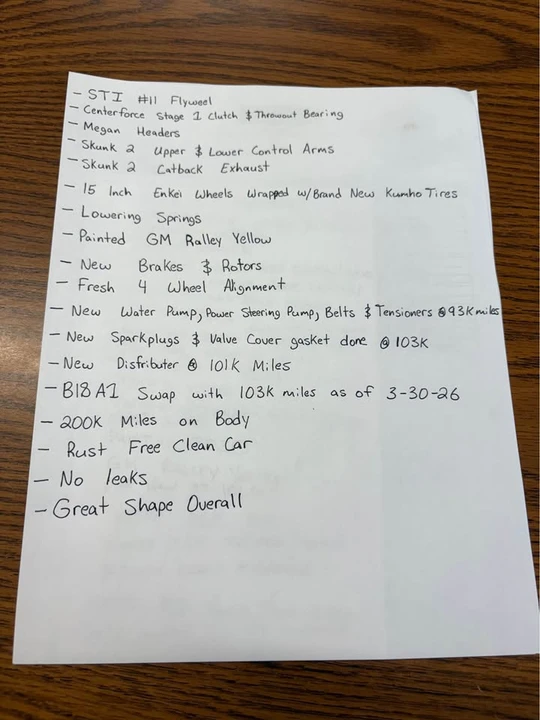 - STI #11 Flyweel
- Centerforce Stage 1 Clutch & Throwout Bearing
- Megan Headers
- Skunk 2 Upper & Lower Control Arms
- Skunk 2 Catback Exhaust
- 15 Inch Enkei Wheels Wrapped w/Brand New Kumho Tires
- Lowering Springs
- Painted GM Ralley Yellow
- New Brakes & Rotors
- Fresh 4 Wheel Alignment
- New Water Pump, Power Steering Pump, Belts & Tensioners @ 93K miles
- New Sparkplugs & Valve Cover gasket done @ 103K
- New Disfributer @ 101K Miles
- B18A1 Swap with 103K miles as of 3-30-26
- 200K Miles on Body
- Rust Free Clean Car
- No leaks
- Great Shape Overall